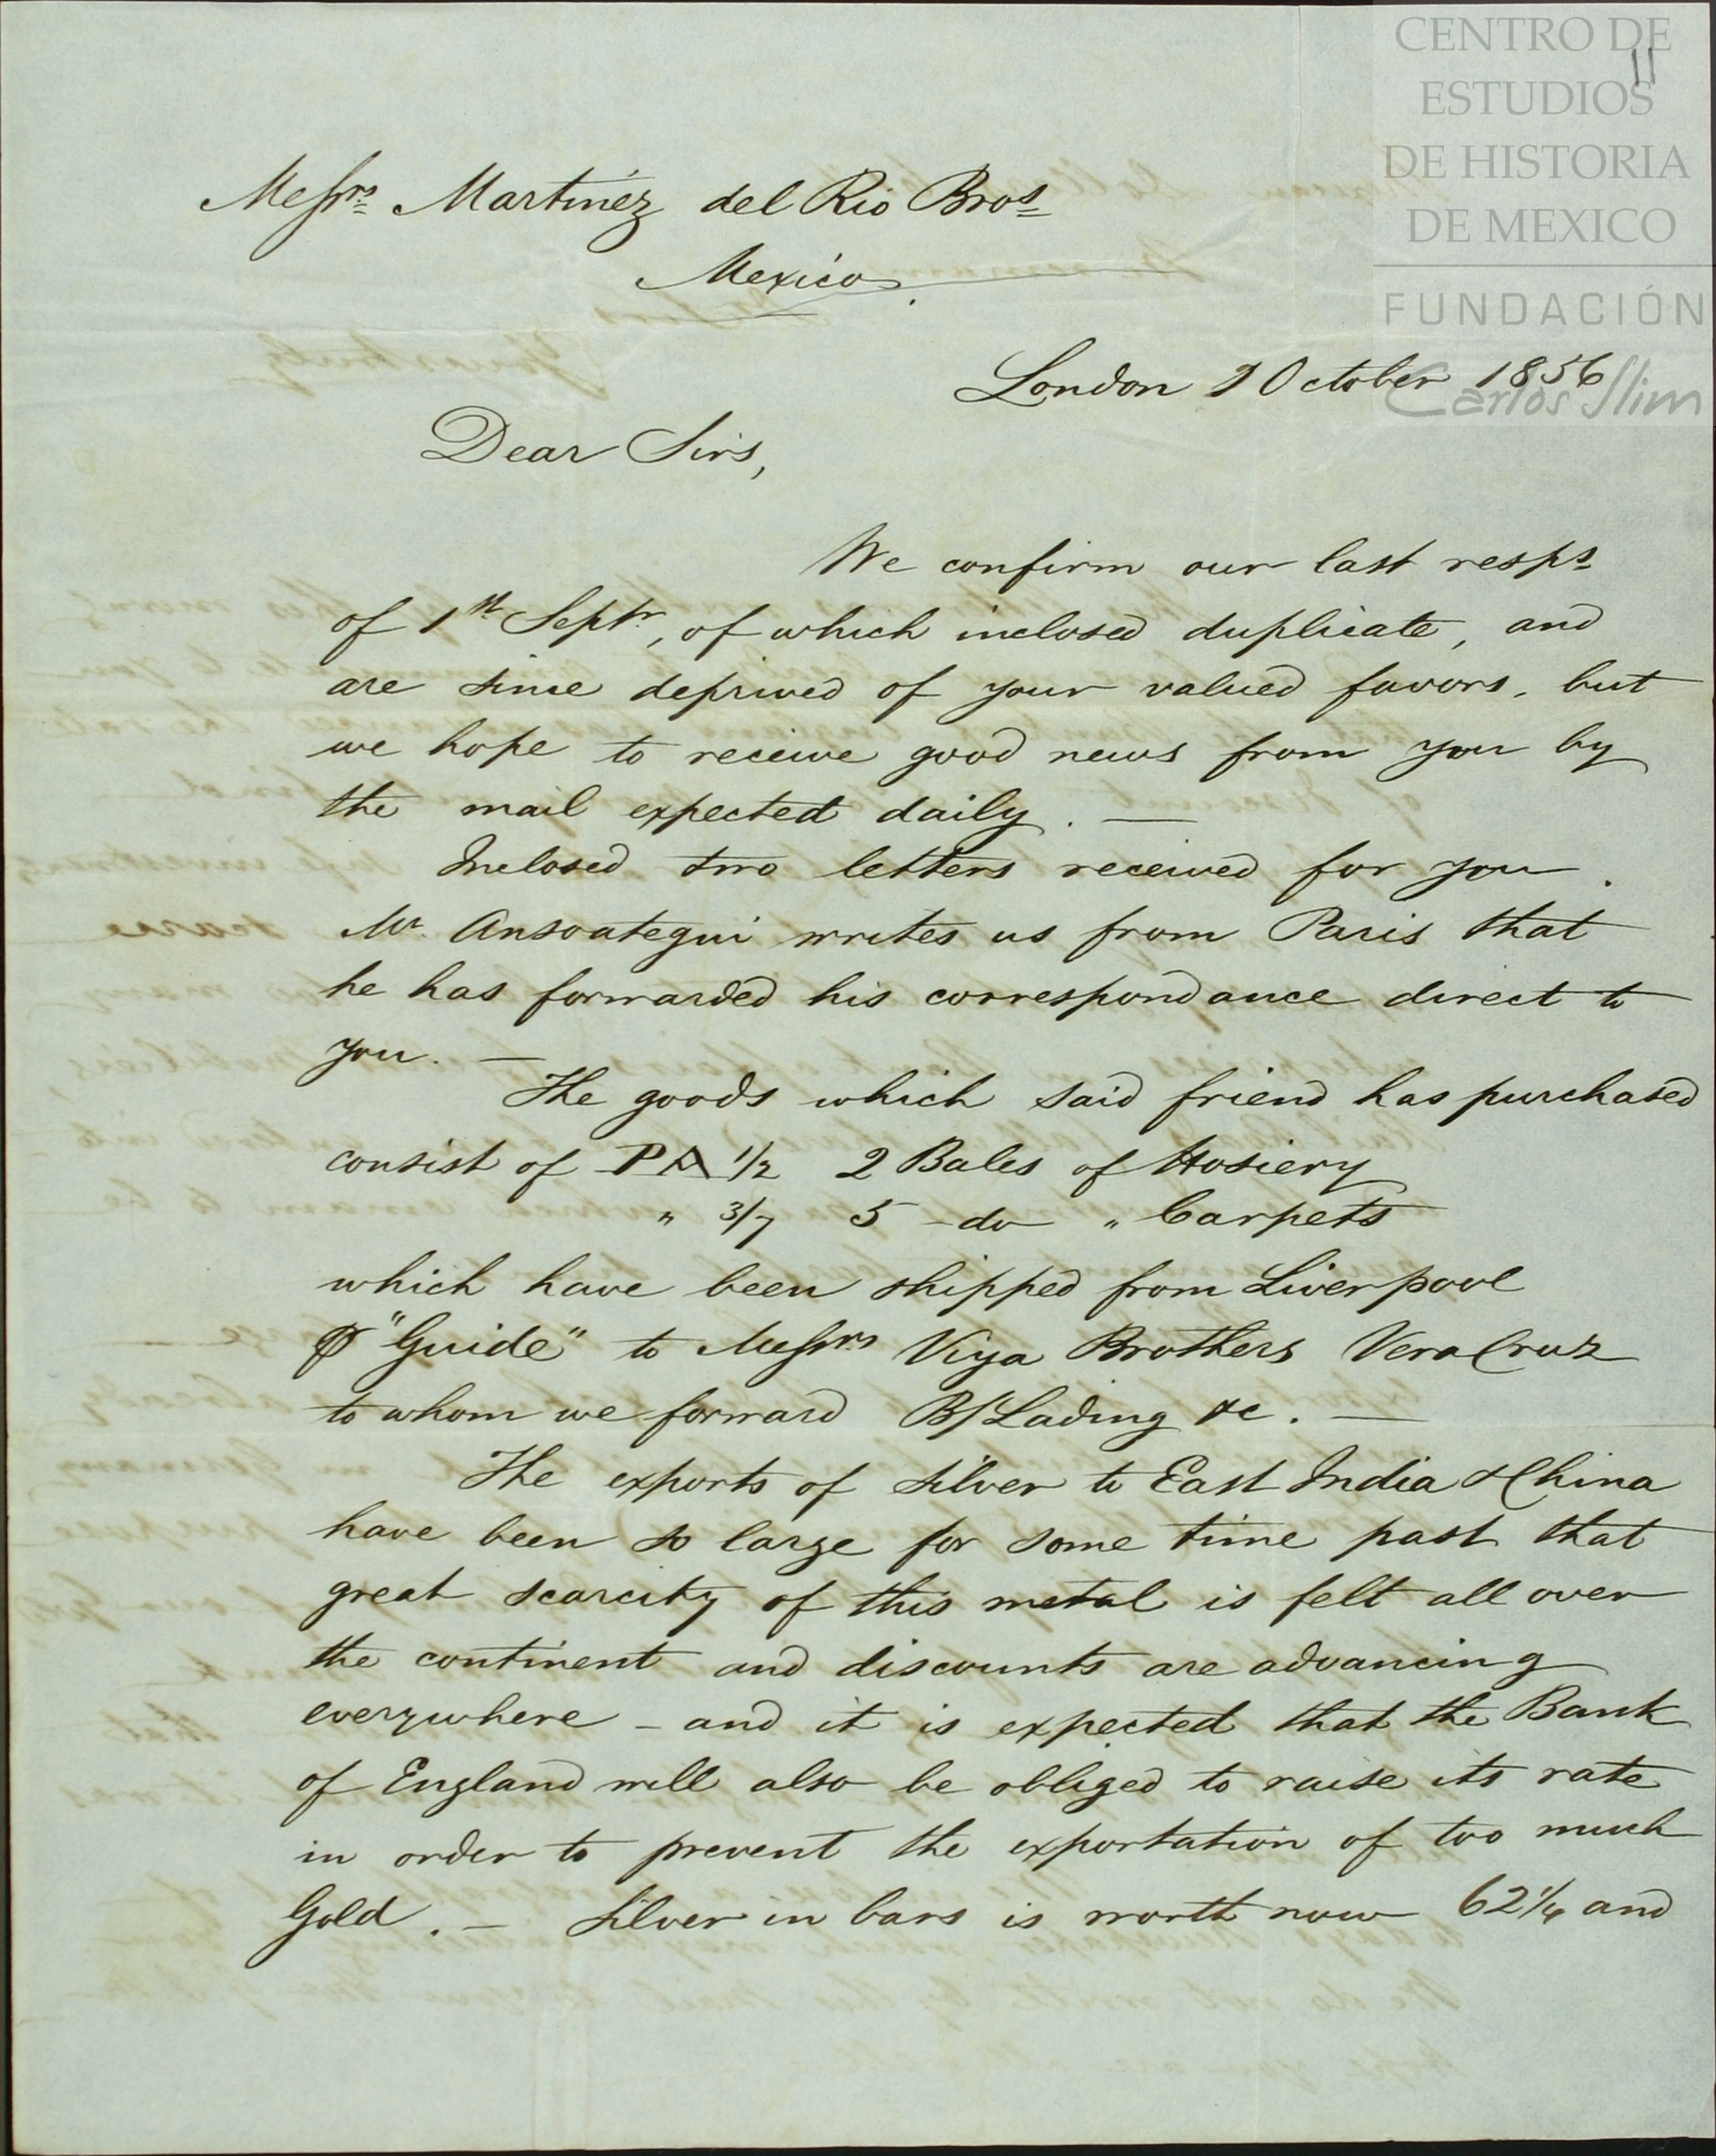 CENTRO DE
ESTUDIOS
DE HISTORIA
DE MEXICO
FUNDACIÓN
Carlos Slim
11
Messrs. Martinez del Rio Bros.
Mexico.
London October 1856
Dear Sirs,
We confirm our last resps.
of 1st. Septr., of which inclosed duplicate, and
are since deprived of your valued favors, but
we hope to receive good news from you by
the mail expected daily. —
Inclosed two letters received for you.
Mr. Ansoategui writes us from Paris that
he has forwarded his correspondance direct to
you. —
The goods which said friend has purchased
consist of P A 1/2 2 Bales of Hosiery
" 3/7 5 do " Carpets
which have been shipped from Liverpool
⅌ "Guide" to Messrs Viya Brothers Vera Cruz
to whom we forward B/Lading &c. —
The exports of silver to East India & China
have been so large for some time past that
great scarcity of this metal is felt all over
the continent and discounts are advancing
everywhere – and it is expected that the Bank
of England will also be obliged to raise its rate
in order to prevent the exportation of too much
Gold. — Silver in bars is worth now 62 1/4 and